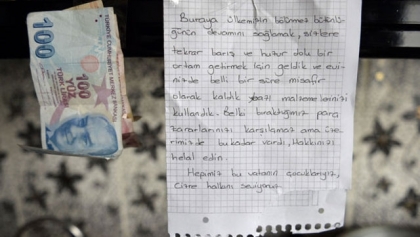 100
TÜRKİYE CUMHURİYET MERKEZ BANKASI
100
Buraya ülkemizin bölünmez bütünlü-
ğünün devamını sağlamak, sizlere
tekrar barış ve huzur dolu bir
ortam getirmek için geldik ve evi-
nizde belli bir süre misafir
olarak kaldık bazı malzemelerinizi
kullandık. Belki bıraktığımız para
zararlarınızı karşılamaz ama üze-
rimizde bu kadar vardı, Hakkınızı
helal edin.
Hepimiz bu vatanın çocuklarıyız,
Cizre halkını seviyoruz.